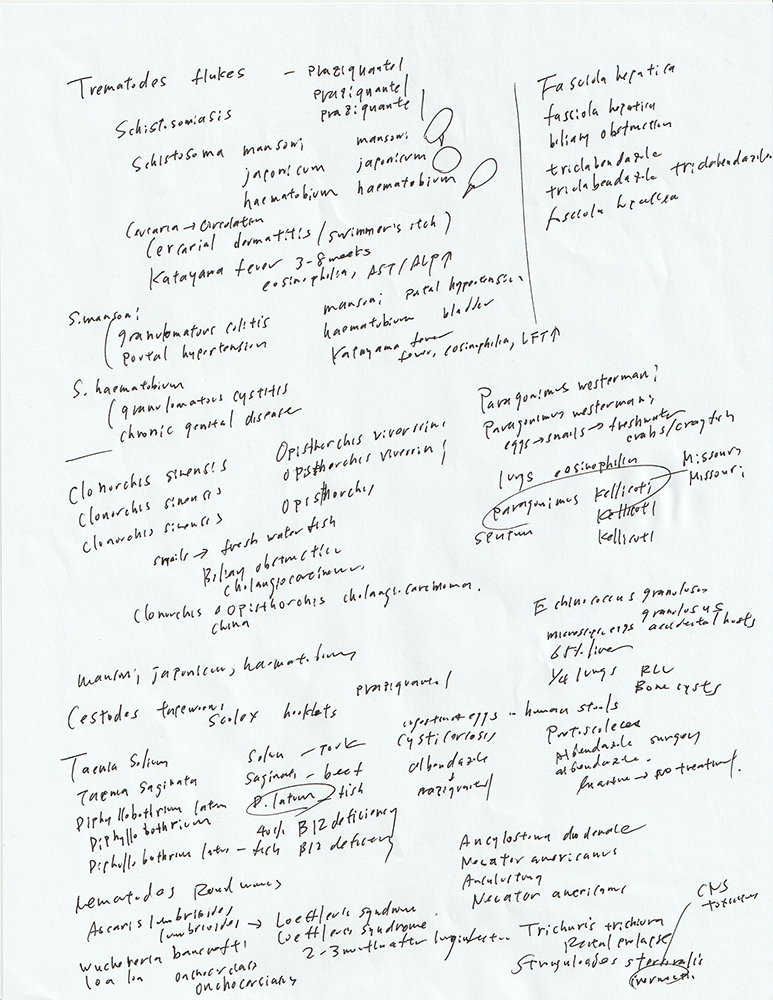 Trematodes flukes - praziquantel
praziquantel
praziquantel
Schistosomiasis
Schistosoma mansoni mansoni
japonicum japonicum
haematobium haematobium
Cercaria → circulation
Cercarial dermatitis (swimmer's itch)
Katayama fever 3-8 weeks
eosinophilia, AST/ALP↑
S. mansoni
granulomatous colitis
portal hypertension
mansoni portal hypertension
haematobium bladder
Katayama fever
fever, eosinophilia, LFT↑
S. haematobium
granulomatous cystitis
chronic genital disease
Fasciola hepatica
fasciola hepatica
biliary obstruction
triclabendazole
triclabendazole triclabendazole
fasciola hepatica
Clonorchis sinensis Opisthorchis viverrini
Clonorchis sinensis Opisthorchis viverrini
Clonorchis sinensis Opisthorchis
snails → fresh water fish
Biliary obstruction
cholangiocarcinoma
Clonorchis Opisthorchis cholangiocarcinoma.
china
Paragonimus westermani
Paragonimus westermani
eggs → snails → freshwater
crabs/crayfish
lungs eosinophilia
paragonimus Kellicoti Missouri
Kellicoti Missouri
sputum Kellicoti
mansoni, japonicum, haematobium
praziquantel
Cestodes tapeworms
Scolex hooklets
Echinococcus granulosus
granulosus
microscopic eggs accidental hosts
65% liver
1/4 lungs RLL
Bone cysts
Taenia Solium Solium - Pork
Taenia Saginata Saginata - beef
Diphyllobothrium latum D. latum - fish
Diphyllobothrium 40% B12 deficiency
Diphyllobothrium latum - fish B12 deficiency
ingestion of eggs - human stools
cysticercosis
albendazole
+
praziquantel
Protoscoleces
Albendazole surgery
albendazole.
Inactive → no treatment.
Nematodes Roundworms
Ascaris lumbricoides
lumbricoides → Loeffler's syndrome
Loeffler's syndrome.
Wuchereria bancrofti 2-3 months after
loa loa onchocerciasis
onchocerciasis
Ancylostoma duodenale
Necator americanus
Ancylostoma
Necator americanus
Trichuris trichiura
Rectal prolapse
Strongyloides stercoralis
CNS